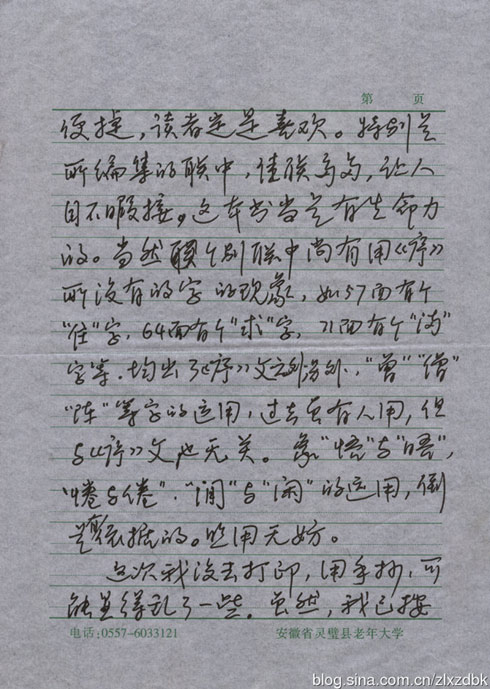 第 页
便捷，读者定是喜欢。特别是
所编集的联中，佳联多多，让人
目不暇接。这本书当是有生命力
的。当然 个别联中尚有用《序》
所没有的字的现象，如57面有个
“住”字，64面有个“求”字，71面有个“满”
字等．均出了《序》文 ．“曾”“僧”
“阵”等字的运用，过去虽有人用，但
与《序》文也无关。象“悟”与“晤”，
“惓与倦”．“ ”与“闲”的运用，倒
是有依据的。照用无妨。
这次我没去打印，用手抄，可
能显得乱了一些。虽然，我已按
电话:0557-6033121 安徽省灵璧县老年大学
blog.sina.com.cn/zlxzdbk